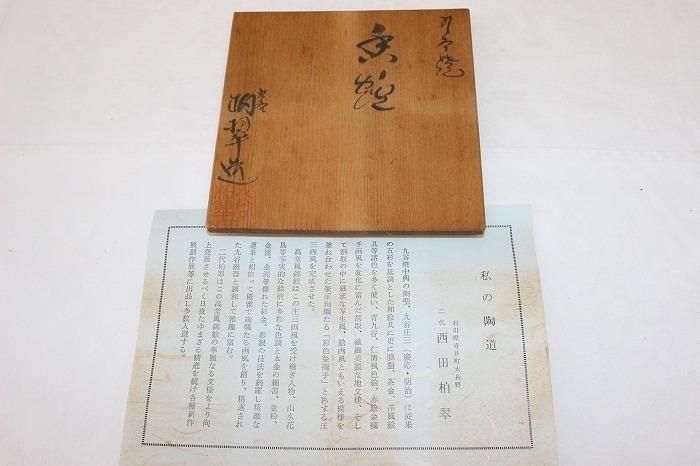 九谷焼
香爐
翠造
私の陶道
石川県寺井町大長野
二代 西田柏翠
九谷焼中興の陶聖、九谷庄三(慶応・明治)は従来
の五彩を基調とした和絵具に更に臙脂、茶金、洋風絵
具等諸色を多く使い、青九谷、仁清風色絵、赤絵金襴
手画風を変化に富んだ割取、繊細美麗な地文様、そし
て割取の中に細密な写生風、絵画風ともいえる模様を
兼ね合わせた豪華絢爛たる「彩色金襴手」と称する庄
三画風を完成させた。
高堂風錦絵はこの庄三画風を受け継ぎ人物、山水花
鳥等写実的な絵柄に多彩な色調と本金の細密、金粉、
金盛、金泥等優れた彩金、彩銀の技法を網羅し精緻な
運筆と相俟って優雅で絢爛たる画風を創り、精選され
た九谷磁器と調和して雅趣に富む。
二代柏翠はこの高堂風錦絵の華麗なる文様をより向
上発展させるべく日夜たゆまざる精進を続け各種新作
展創作展等に出品し多数入選する。